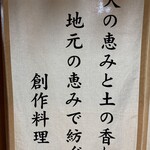 の恵みと土の香
地元の恵みで紡
創作料理